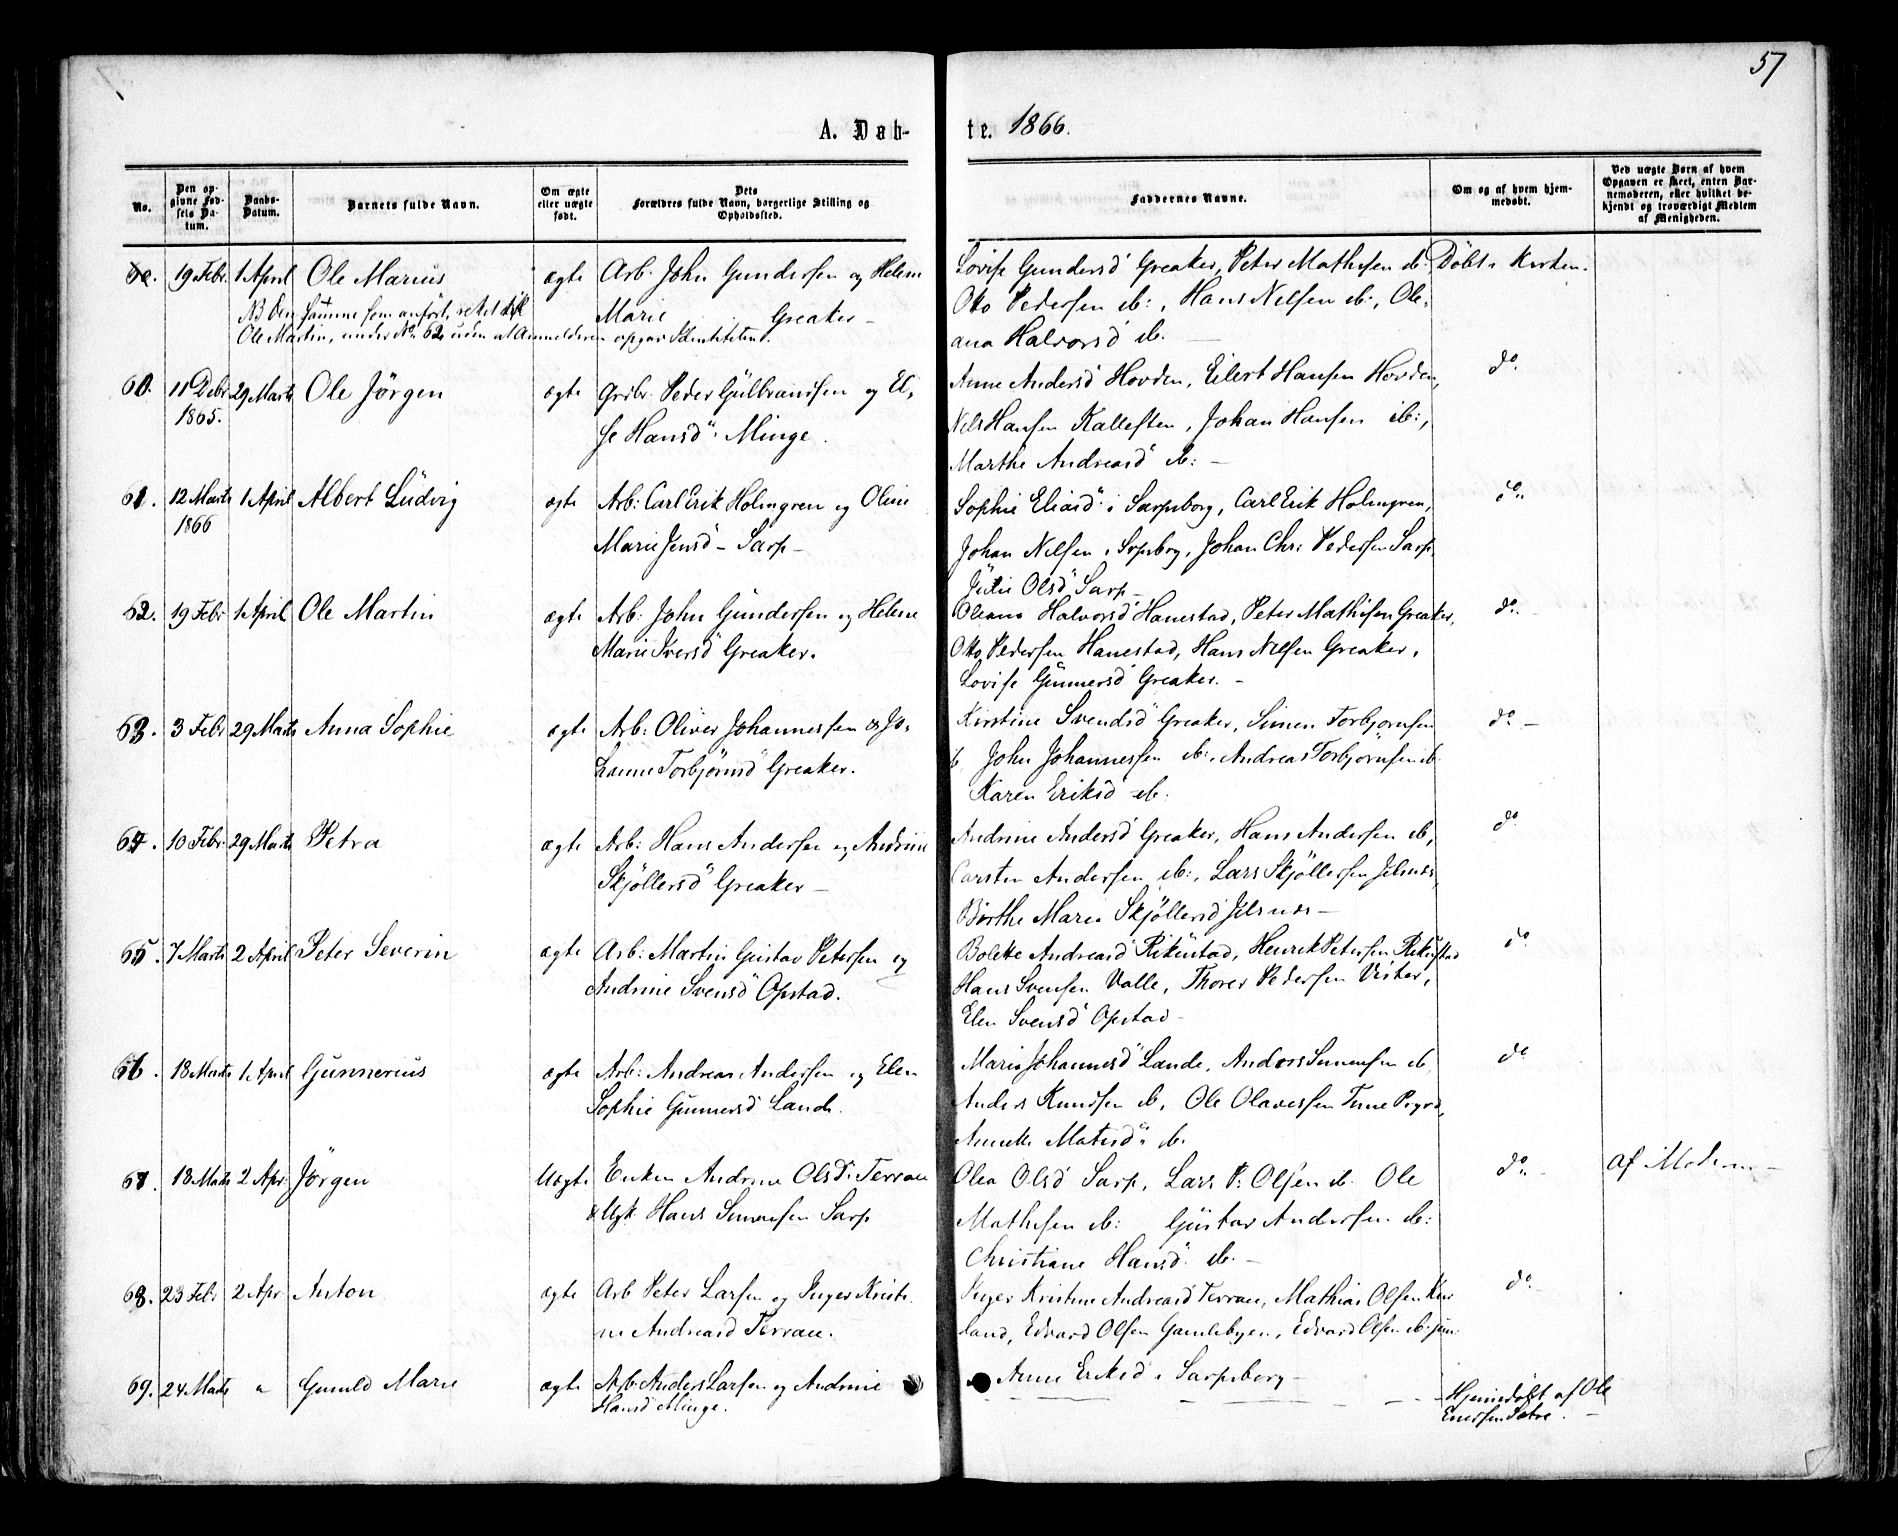 57
A. Døb-
te. 1866.
No.
Den op-
givne Fød-
sels Da-
tum.
Daabs-
Datum.
Barnets fulde Navn.
Om ægte
eller uægte
født.
Dets
Forældres fulde Navn, borgerlige Stilling og
Opholdssted.
Faddernes Navne.
Om og af hvem hjem-
medøbt.
Ved uægte Børn af hvem
Opgaven er skeet, enten Bar-
nemoderen, eller hvilket be-
kjendt og troværdigt Medlem
af Menigheden.
19 Febr. 1 April Ole Marius ægte Arb. John Gundersen og Helene Lovise Gundersd Greaker, Peter Mathisen ib. Døbt i Kirken.
NB Den samme som anført,
Marie Greaker – Otto Pedersen ib:, Hans Nelsen ib:, Ole-
Ole Martin, under No 62 uden at Anmelderen opgav Identiteten.
ana Halvorsd ib. –
60. 11 Debr 29 Marts Ole Jörgen ægte Grbr. Peder Gulbrandsen og El- Anne Andersd Hovden, Eilert Hansen Hovden, do.
1865.
se Hansd: Minge. Nils Hansen Kalleften, Johan Hansen ib:,
Marthe Andreasd ib: –
61. 12 Marts 1 April Albert Ludvig ægte Arb: Carl Erik Holmgren og Oline Sophie Eliasd: i Sarpsborg, Carl Erik Holmgren, do.
1866
Marie Jensd – Sarp – Johan Nelsen i Srpsbrg, Johan Chr: Pedersen Sarp
Julie Olsd Sarp –
62. 19 Febr 1 April Ole Martin ægte Arb: John Gundersen og Helene Oleana Halvorsd Hanestad, Peter Mathisen Greaker, do.
Marie Iversd Greaker. Otto Pedersen Hanestad, Hans Nelsen Greaker,
Lovise Gunnersd Greaker. –
63. 3 Febr 29 Marts Anna Sophie ægte Arb: Oliver Johannessen & Jo- Kirstine Svendsd Greaker, Simen Torbjornsen do. –
hanne Torbjørnsd Greaker. ib, John Johannessen ib:, Andreas Torbjornsen ib
Karen Eriksd ib.
64. 10 Febr. 29 Marts Petra ægte Arb: Hans Andersen og Andrine Andrine Andersd Greaker, Hans Andersen ib, do
Skjöllersd Greaker – Carsten Andersen ib:, Lars Skjöllersen Jelsnes,
Birthe Marie Skjöllersd Jelsnes –
65. 7 Marts 2 April Peter Severin ægte Arb: Martin Gustav Petersen og Bolette Andreasd Rikustad, Henrik Petersen Rikustad do
Andrine Svensd Opstad. Hans Svensen Valle, Thorer Pedersen Vister,
Elen Svensd Opstad –
66. 18 Marts 1 April Gunnerius ægte Arb: Andreas Andersen og Elen Marie Johannesd Lande, Anders Simensen ib do
Sophie Gunnersd Lande. Anders Knudsen ib, Ole Olavessen Tune Prgrd,
Annette Matisd: ib.
67. 18 Marts 2 Apr. Jörgen Uægte Enken Andrine Olsd: Terran Olea Olsd Sarp, Lars P: Olsen ib. Ole do. – Af Moderen –
& Ugk. Hans Simensen Sarp Mathisen ib: Gustav Andersen ib:
Christiane Hansd: ib. –
68. 23 Febr 2 Apr Anton ægte Arb Peter Larsen og Inger Kristi- Inger Kristine Andreasd Terran, Mathias Olsen Kur- do –
ne Andreasd Terran. land, Edvard Olsen Gamlebyen, Edvard Olsen ib. jun.
Anne Eriksd i Sarpsborg –
69. 24 Marts Gunild Marie ægte Arb: Anders Larsen og Andrine Hjemmedøbt af Ole
Hansd Minge. Enersen Sætre. –